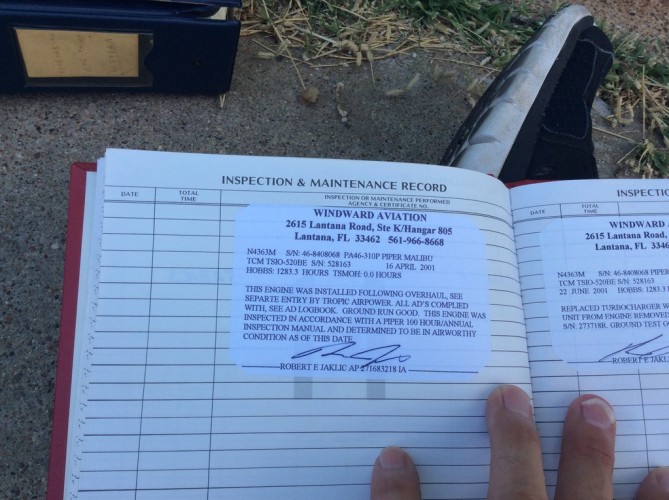 INSPECTION & MAINTENANCE RECORD
DATE
TOTAL TIME
INSPECTION OR MAINTENANCE PERFORMED
AGENCY & CERTIFICATE NO.
WINDWARD AVIATION
2615 Lantana Road, Ste K/Hangar 805
Lantana, FL 33462 561-966-8668
N4363M S/N: 46-8408068 PA46-310P PIPER MALIBU
TCM TSIO-520BE S/N: 528163 16 APRIL 2001
HOBBS: 1283.3 HOURS TSMOH: 0.0 HOURS
THIS ENGINE WAS INSTALLED FOLLOWING OVERHAUL, SEE
SEPARTE ENTRY BY TROPIC AIRPOWER. ALL AD'S COMPLIED
WITH, SEE AD LOGBOOK. GROUND RUN GOOD. THIS ENGINE WAS
INSPECTED IN ACCORDANCE WITH A PIPER 100 HOUR/ANNUAL
INSPECTION MANUAL AND DETERMINED TO BE IN AIRWORTHY
CONDITION AS OF THIS DATE
ROBERT E JAKLIC AP 271683218 IA
DATE
TOTAL TIME
WINDWARD
2615 Lantana Road,
Lantana, FL 3346
N4363M S/N: 46-8408068 PIPER
TCM TSIO-520BE S/N: 528163
22 JUNE 2001 HOBBS: 1283.3
REPLACED TURBOCHARGER W
UNIT FROM ENGINE REMOVED
S/N: 273718R. GROUND TEST
ROBERT E JAKLIC